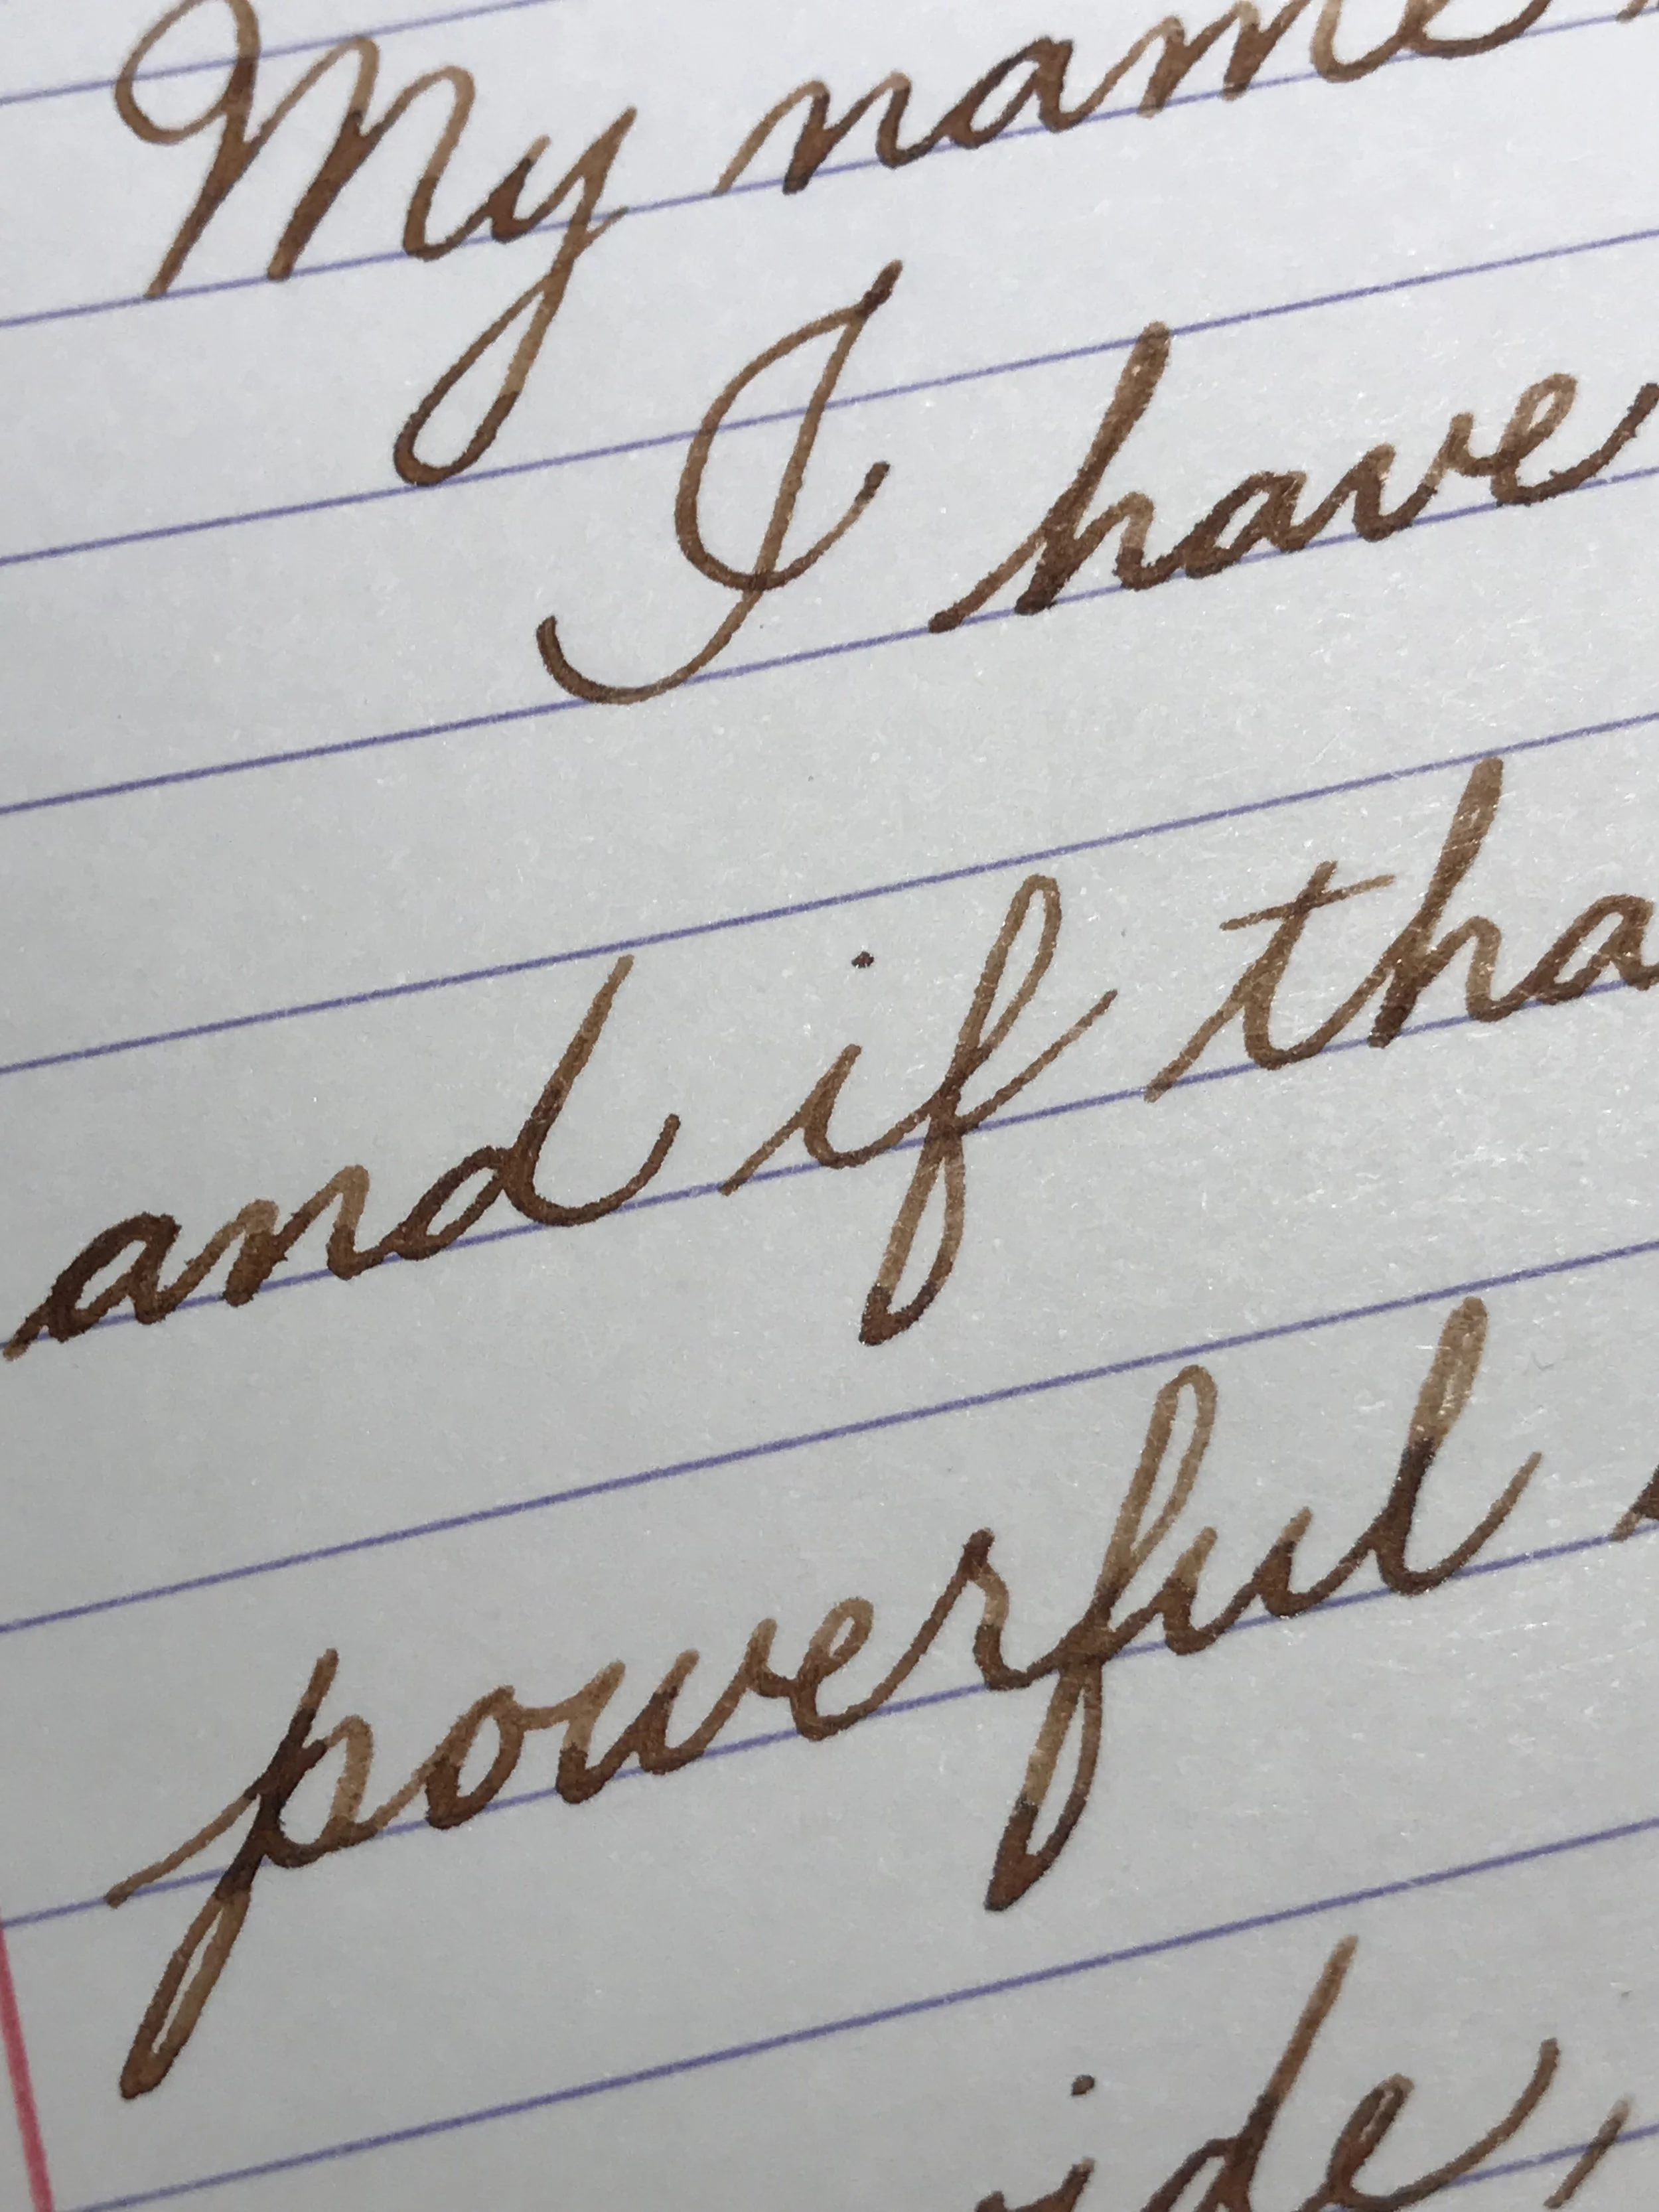 My name
I have
and if tha
powerful
ide,